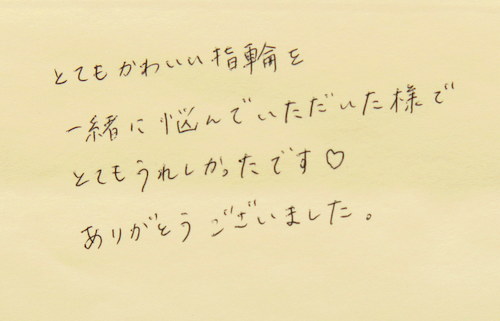 とてもかわいい指輪を
一緒に悩んでいただいた様で
とてもうれしかったです♡
ありがとうございました。